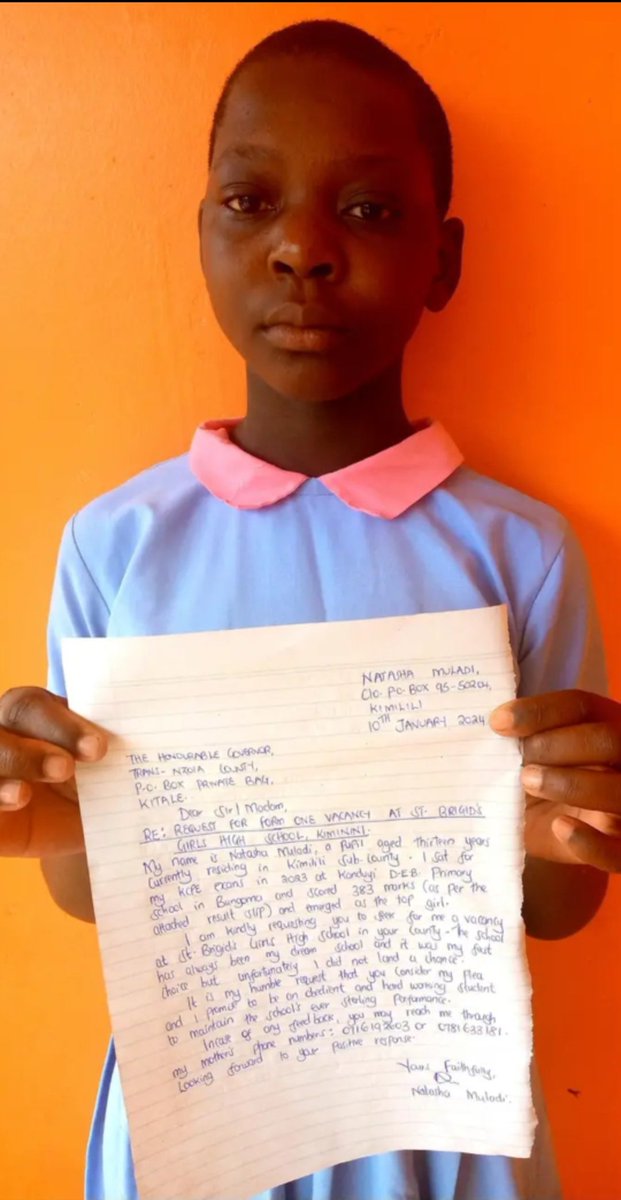 NATASHA MULADI,
C/O. P.O. BOX 95-50204,
KIMILILI
10TH JANUARY 2024
THE HONOURABLE GOVERNOR,
TRANS-NZOIA COUNTY,
P.O. BOX PRIVATE BAG,
KITALE.
Dear Sir/Madam,
RE: REQUEST FOR FORM ONE VACANCY AT ST. BRIGID'S
GIRLS HIGH SCHOOL, KIMININI.
My name is Natasha Muladi, a pupil aged thirteen years
currently residing in Kimilili Sub-County. I sat for
my KCPE exams in 2023 at Kanduyi D.E.B. Primary
school in Bungoma and scored 383 marks (as per the
attached result slip) and emerged as the top girl.
I am kindly requesting you to seek for me a vacancy
at St. Brigid's Girls High School in your County. The school
has always been my dream school and it was my first
choice but unfortunately I did not land a chance.
It is my humble request that you consider my plea
and I promise to be an obedient and hard working student
to maintain the school's ever sterling performance.
Incase of any feedback, you may reach me through
my mother's phone numbers: 0716192603 or 0781633181.
Looking forward to your positive response.
Yours Faithfully,
Natasha Muladi.